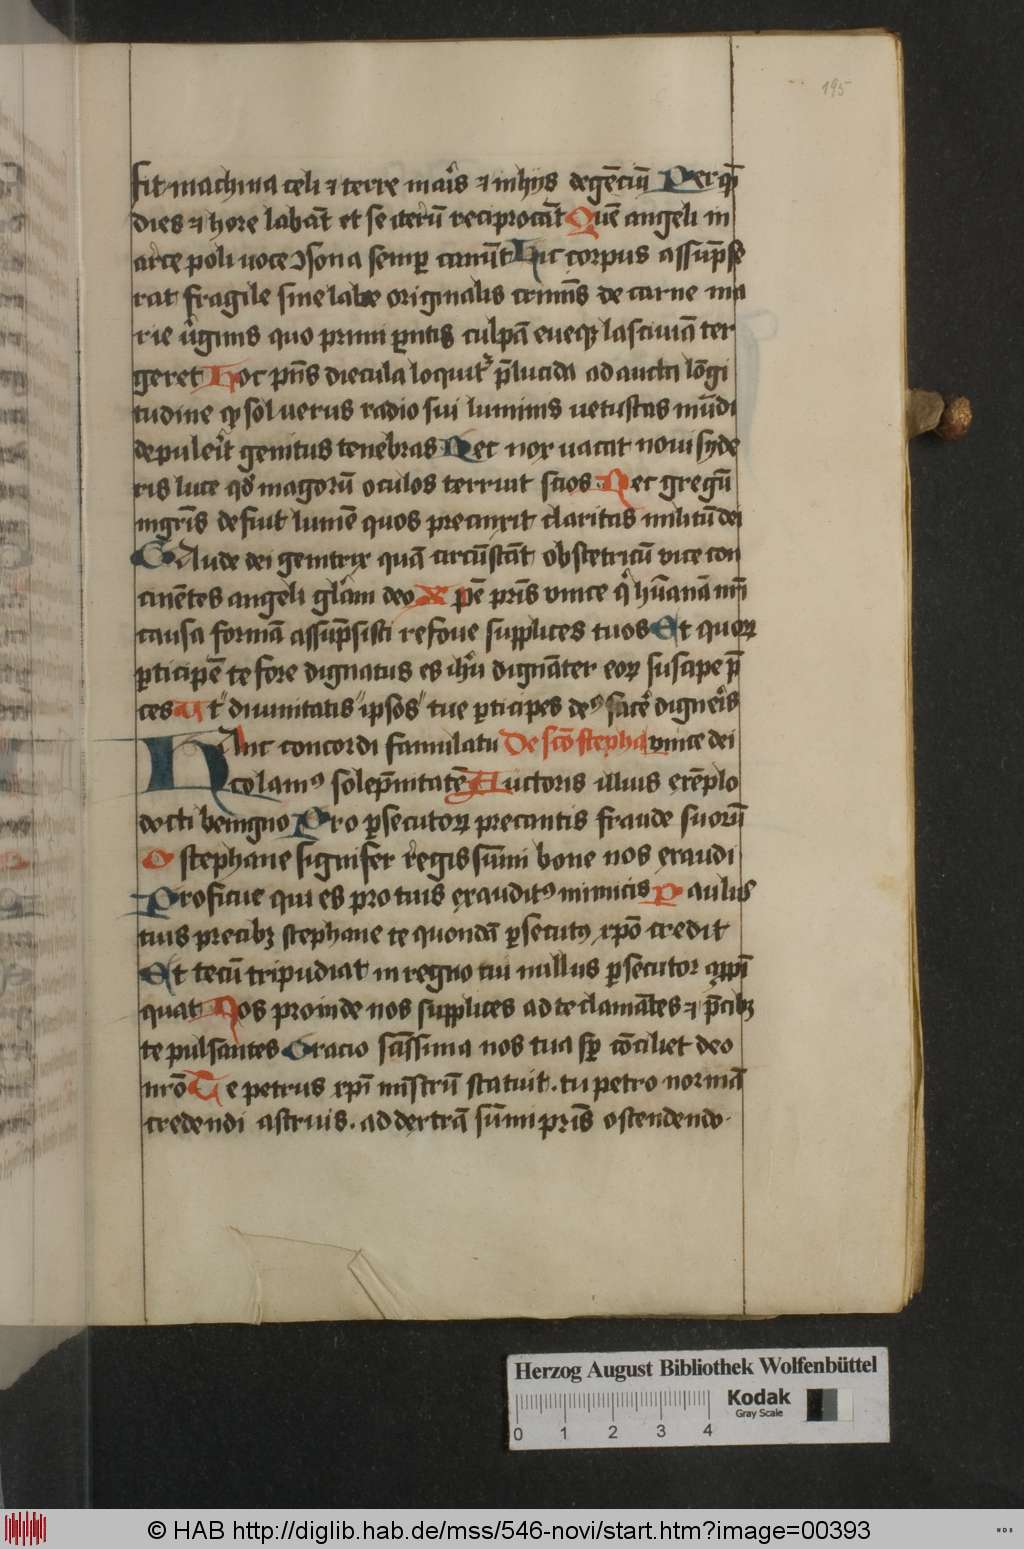 195
fit machina celi ⁊ terre mar̄is ⁊ in hijs degēciū Per quē
dies ⁊ hore labāt et se iterū reciprocāt Quē angeli in
arce poli uoce ꝯsona semꝑ canūt Hic corpus assūpse
rat fragile sine labe originalis crimīs de carne ma
rie ûginis quo primi ꝑntis culpā eueqꝫ lasciuiā ter
geret Hoc pn̄s diecula loquitᷣ p̄lucida ad aucta lōgi
tudine ꝙ sol uerus radio sui luminis uetustas mūdi
depuleīt genitus tenebras Nec nox uacat noui syde
ris luce qd̓ magorū oculos terruit scios Nec gregū
mgrīs defiuit lumē quos precinxit claritas militū dei
Gaude dei genitrix quā circūstāt obstetricū vice con
cinētes angeli glām deo Xpē prīs vnice qͥ hūanā nrī
causa formā assūpsisti refoue supplices tuos Et quoꝝ
ꝑticipē te fore dignatus es ihū dignāter eoꝝ suscipe p̄
ces Ut diuinitatis ipsos tue ꝑticipes deꝰ facē digneīs
HAnc concordi famulatu De scō stepha vnice dei
colamꝰ solēpnitatē Auctoris illius exēplo
docti benigno Pro ꝑsecutoꝝ precantis fraude suorū
O stephane signifer regis sūmi bone nos exaudi
Proficue qui es pro tuis exauditꝰ inimicis Paulus
tuis precibꝫ stephane te quondā ꝑsecutꝰ xpō credit
Et tecū tripudiat in regno cui nullus ꝑsecutor appī
quat Nos proinde nos supplices ad te clamātes ⁊ p̄cibꝫ
te pulsantes Oracio scīssima nos tua sp̄ cōciliet deo
nrō Te petrus xpī mīstrū statuit. tu petro normā
credendi astruis. ad dextrā sūmi prīs ostendendo.
Herzog August Bibliothek Wolfenbüttel
Kodak
Gray Scale
0 1 2 3 4
© HAB http://diglib.hab.de/mss/546-novi/start.htm?image=00393